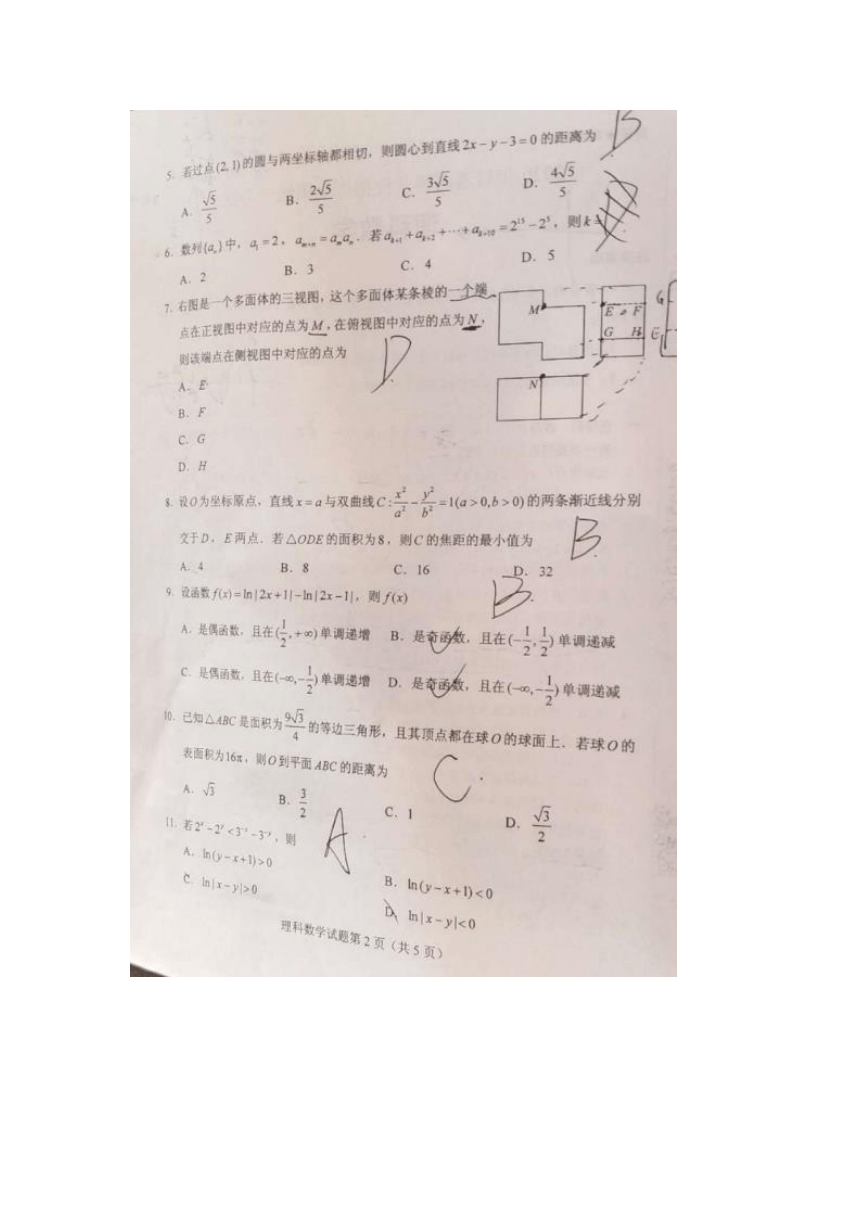 B
5. 若过点(2,1)的圆与两坐标轴都相切，则圆心到直线2x－y－3＝0的距离为
A. √5/5 B. 2√5/5 C. 3√5/5 D. 4√5/5
6. 数列{aₙ}中，a₁＝2，aₘ₊ₙ＝aₘaₙ．若aₖ₊₁＋aₖ₊₂＋⋯＋aₖ₊₁₀＝2¹⁵－2⁵，则k＝
A. 2 B. 3 C. 4 D. 5
7. 右图是一个多面体的三视图，这个多面体某条棱的一个端
点在正视图中对应的点为M，在俯视图中对应的点为N，
则该端点在侧视图中对应的点为
D
A. E
B. F
C. G
D. H
M
E F
G H
N
G
E
8. 设O为坐标原点，直线x＝a与双曲线C：x²/a²－y²/b²＝1(a＞0,b＞0)的两条渐近线分别
交于D，E两点．若△ODE的面积为8，则C的焦距的最小值为
B
A. 4 B. 8 C. 16 D. 32
9. 设函数f(x)＝ln|2x+1|－ln|2x－1|，则f(x)
B
A. 是偶函数，且在(1/2,+∞)单调递增 B. 是奇函数，且在(－1/2,1/2)单调递减
C. 是偶函数，且在(－∞,－1/2)单调递增 D. 是奇函数，且在(－∞,－1/2)单调递减
10. 已知△ABC是面积为9√3/4的等边三角形，且其顶点都在球O的球面上．若球O的
表面积为16π，则O到平面ABC的距离为
C
A. √3 B. 3/2 C. 1 D. √3/2
11. 若2ˣ－2ʸ＜3⁻ˣ－3⁻ʸ，则
A
A. ln(y－x+1)＞0 B. ln(y－x+1)＜0
C. ln|x－y|＞0 D. ln|x－y|＜0
理科数学试题第2页（共5页）